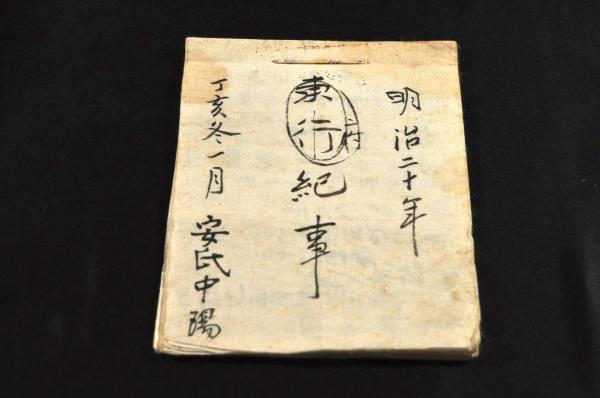 明治二十年
東行紀事
府
丁亥冬一月 安氏中陽